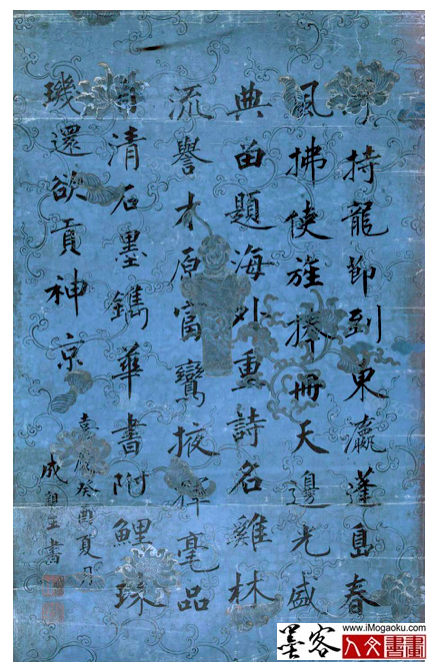 持龍節到東瀛蓬島春
風拂使旌捧冊天邊光盛
典留題海外重詩名雞林
流譽才原富鸞掖揮毫品
清石墨鐫華書附鯉球
璣還欲貢神京
嘉慶癸酉夏月
成親王書
www.iMogaoku.com
墨客 人文書畫